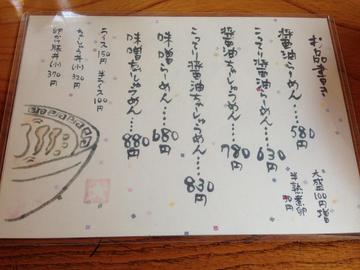 お品書き
醤油らーめん……580円
こってり醤油らーめん……630円
醤油ちゃーしゅうめん……780円
こってり醤油ちゃーしゅうめん……830円
味噌らーめん……680円
味噌ちゃーしゅうめん……880円
大盛100円増
半熟煮卵
ライス150円 半ライス100円
ちゃーしゅう丼(小)320円
豚丼(小)370円